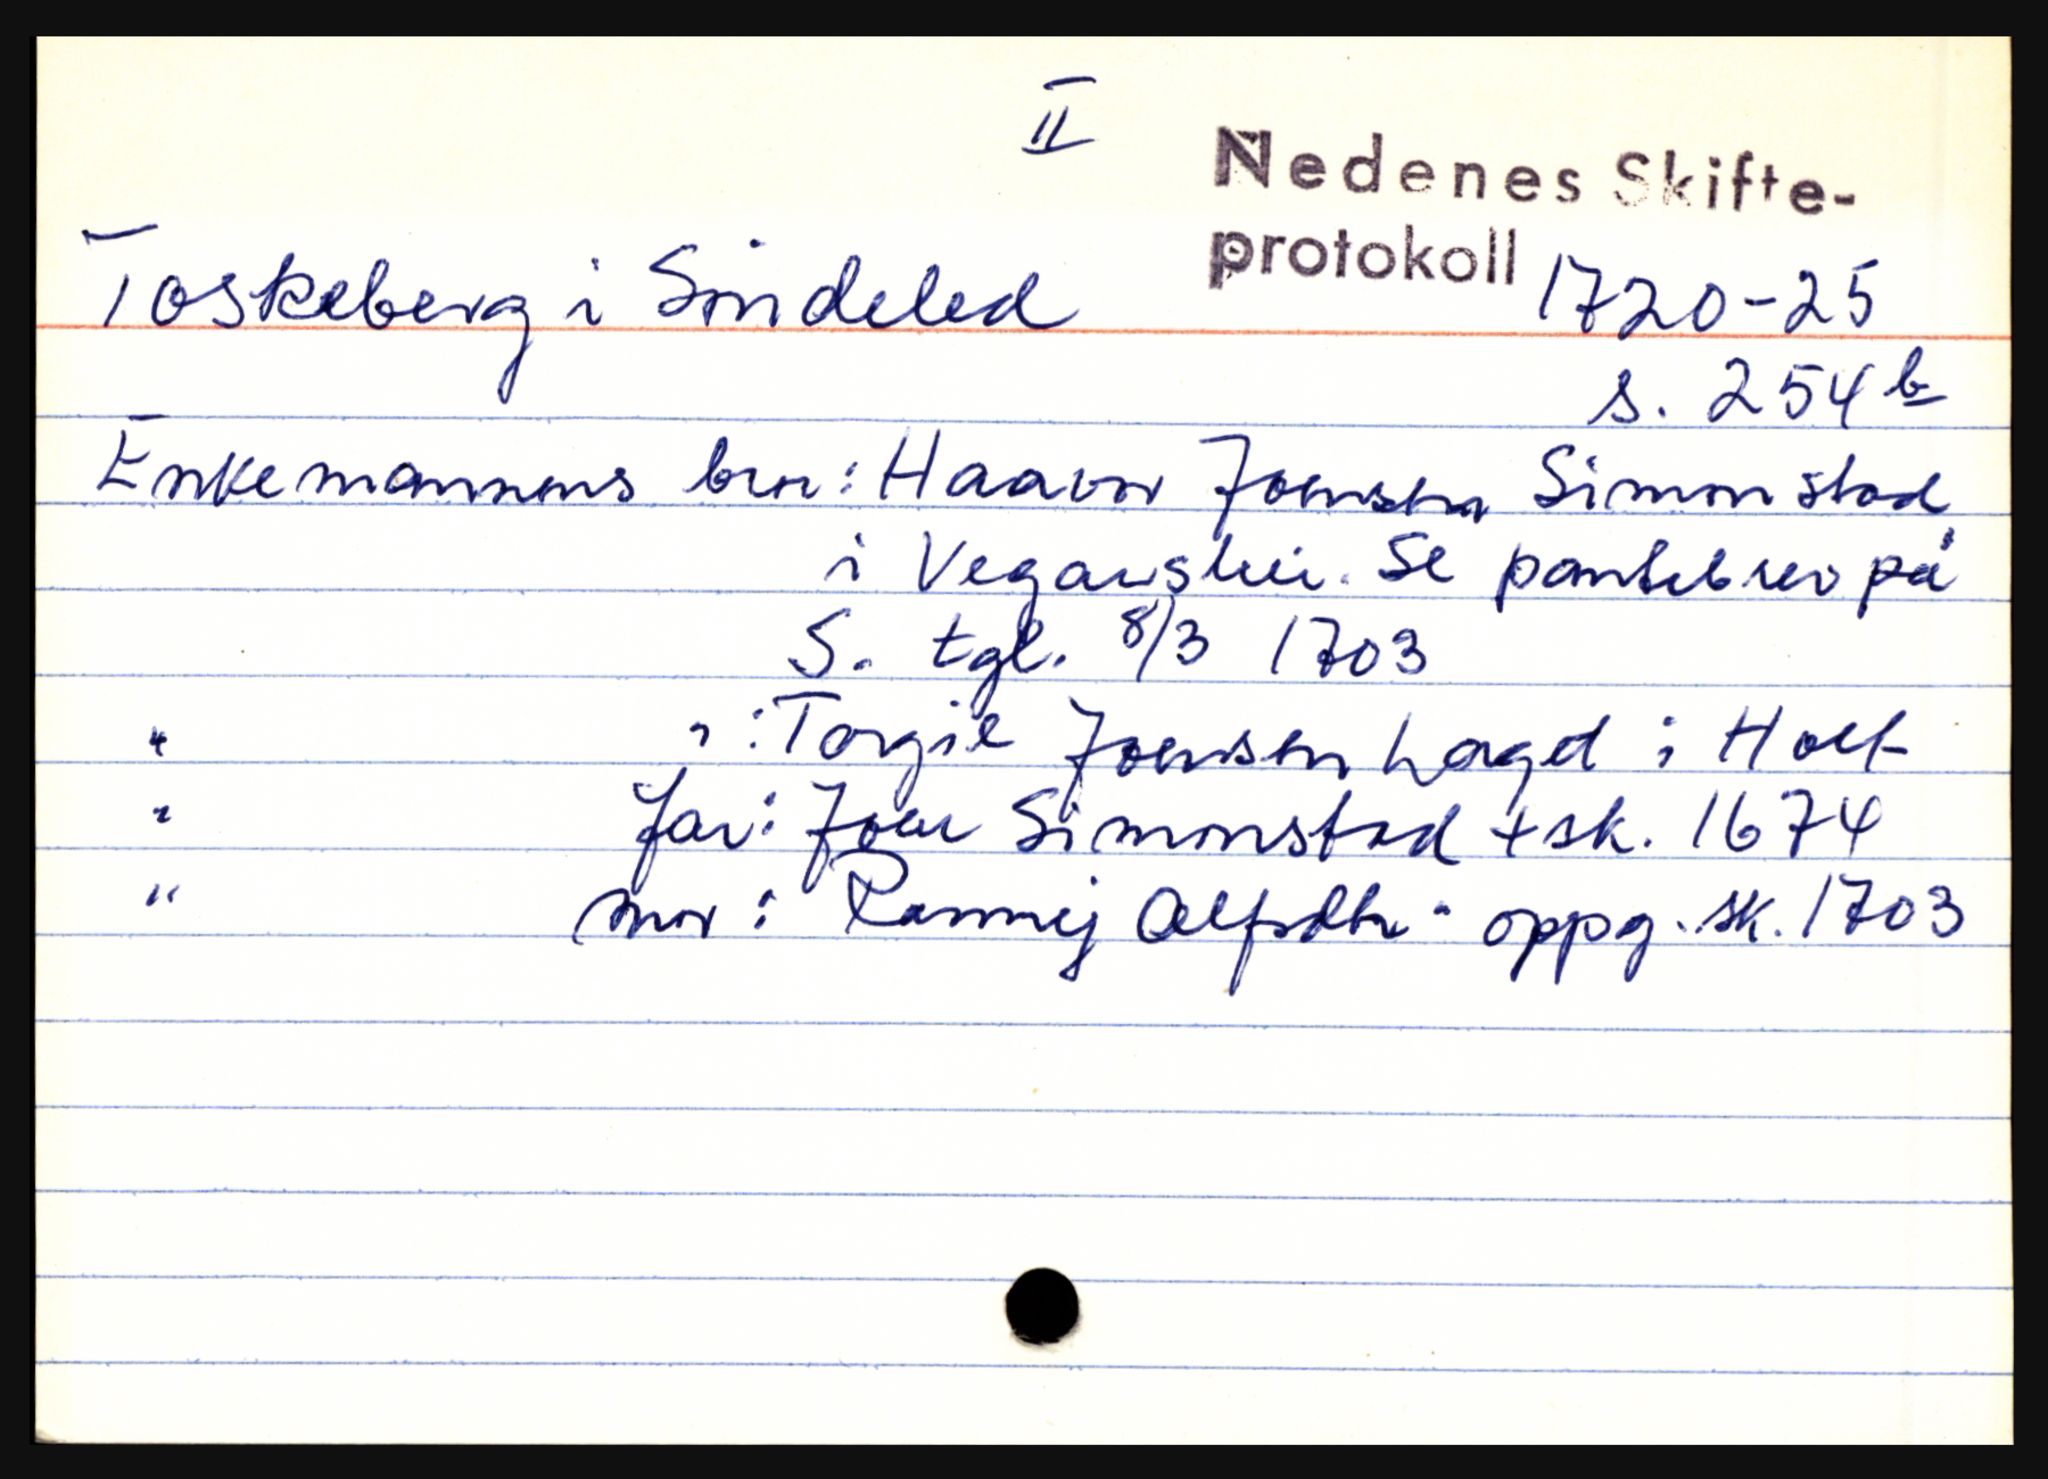 II
Nedenes Skifte-
protokoll
Toskeberg i Sündeled 1720-25
s. 254 b
Enkemannens bror: Haavor Joensen Simonstad
i Vegårshei. Se pantebrev på
S. tgl. 8/3 1703
" " : Torgil Joensen Laget i Holt
" far: Joen Simonstad + sk. 1674
" mor: Rannej Alfsdtr. oppg. sk. 1703